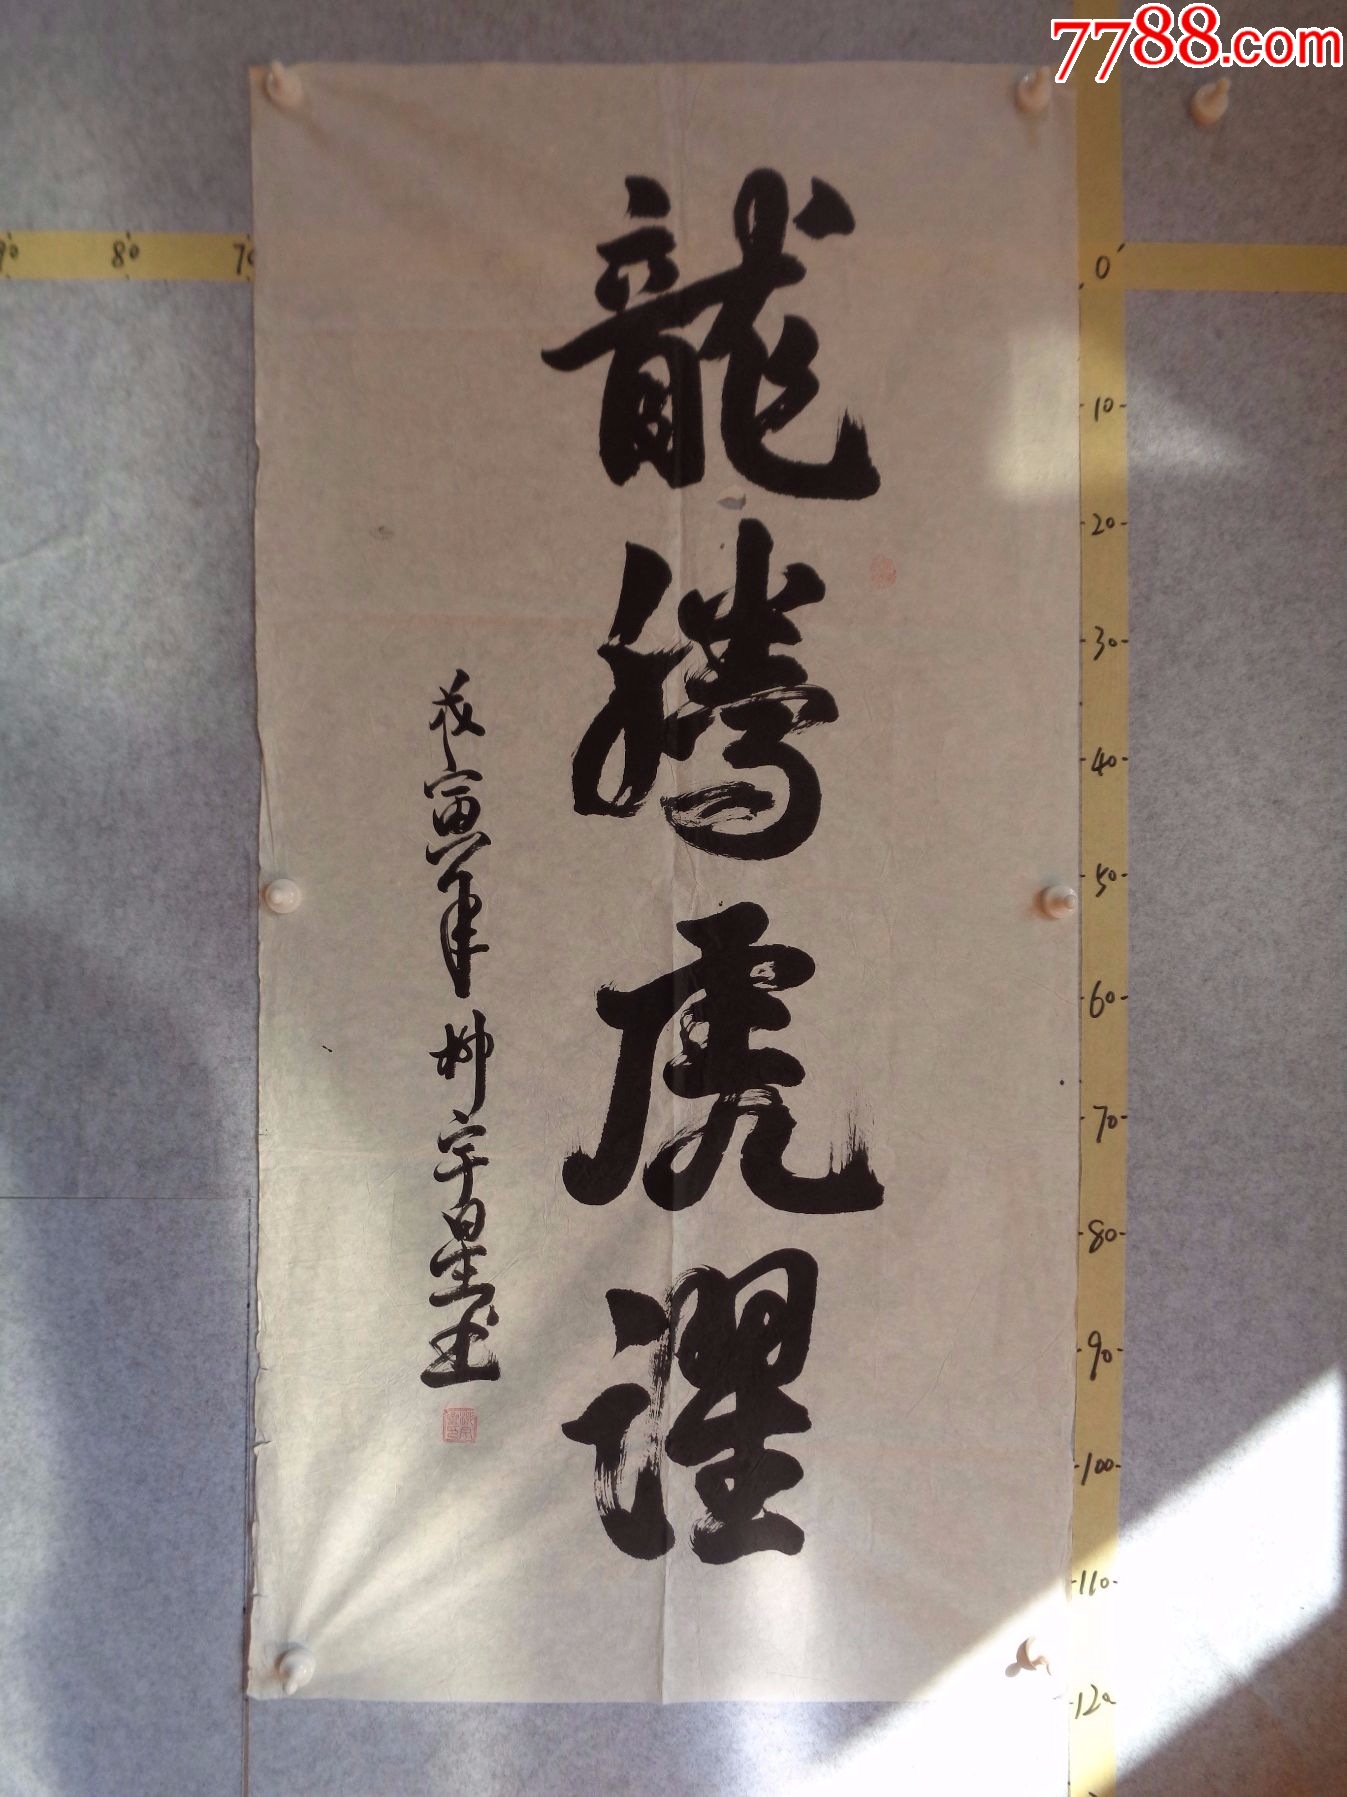 7788.com
龍騰虎躍
戊寅年 柳宇星书
90 80 70
0
10
20
30
40
50
60
70
80
90
100
110
120